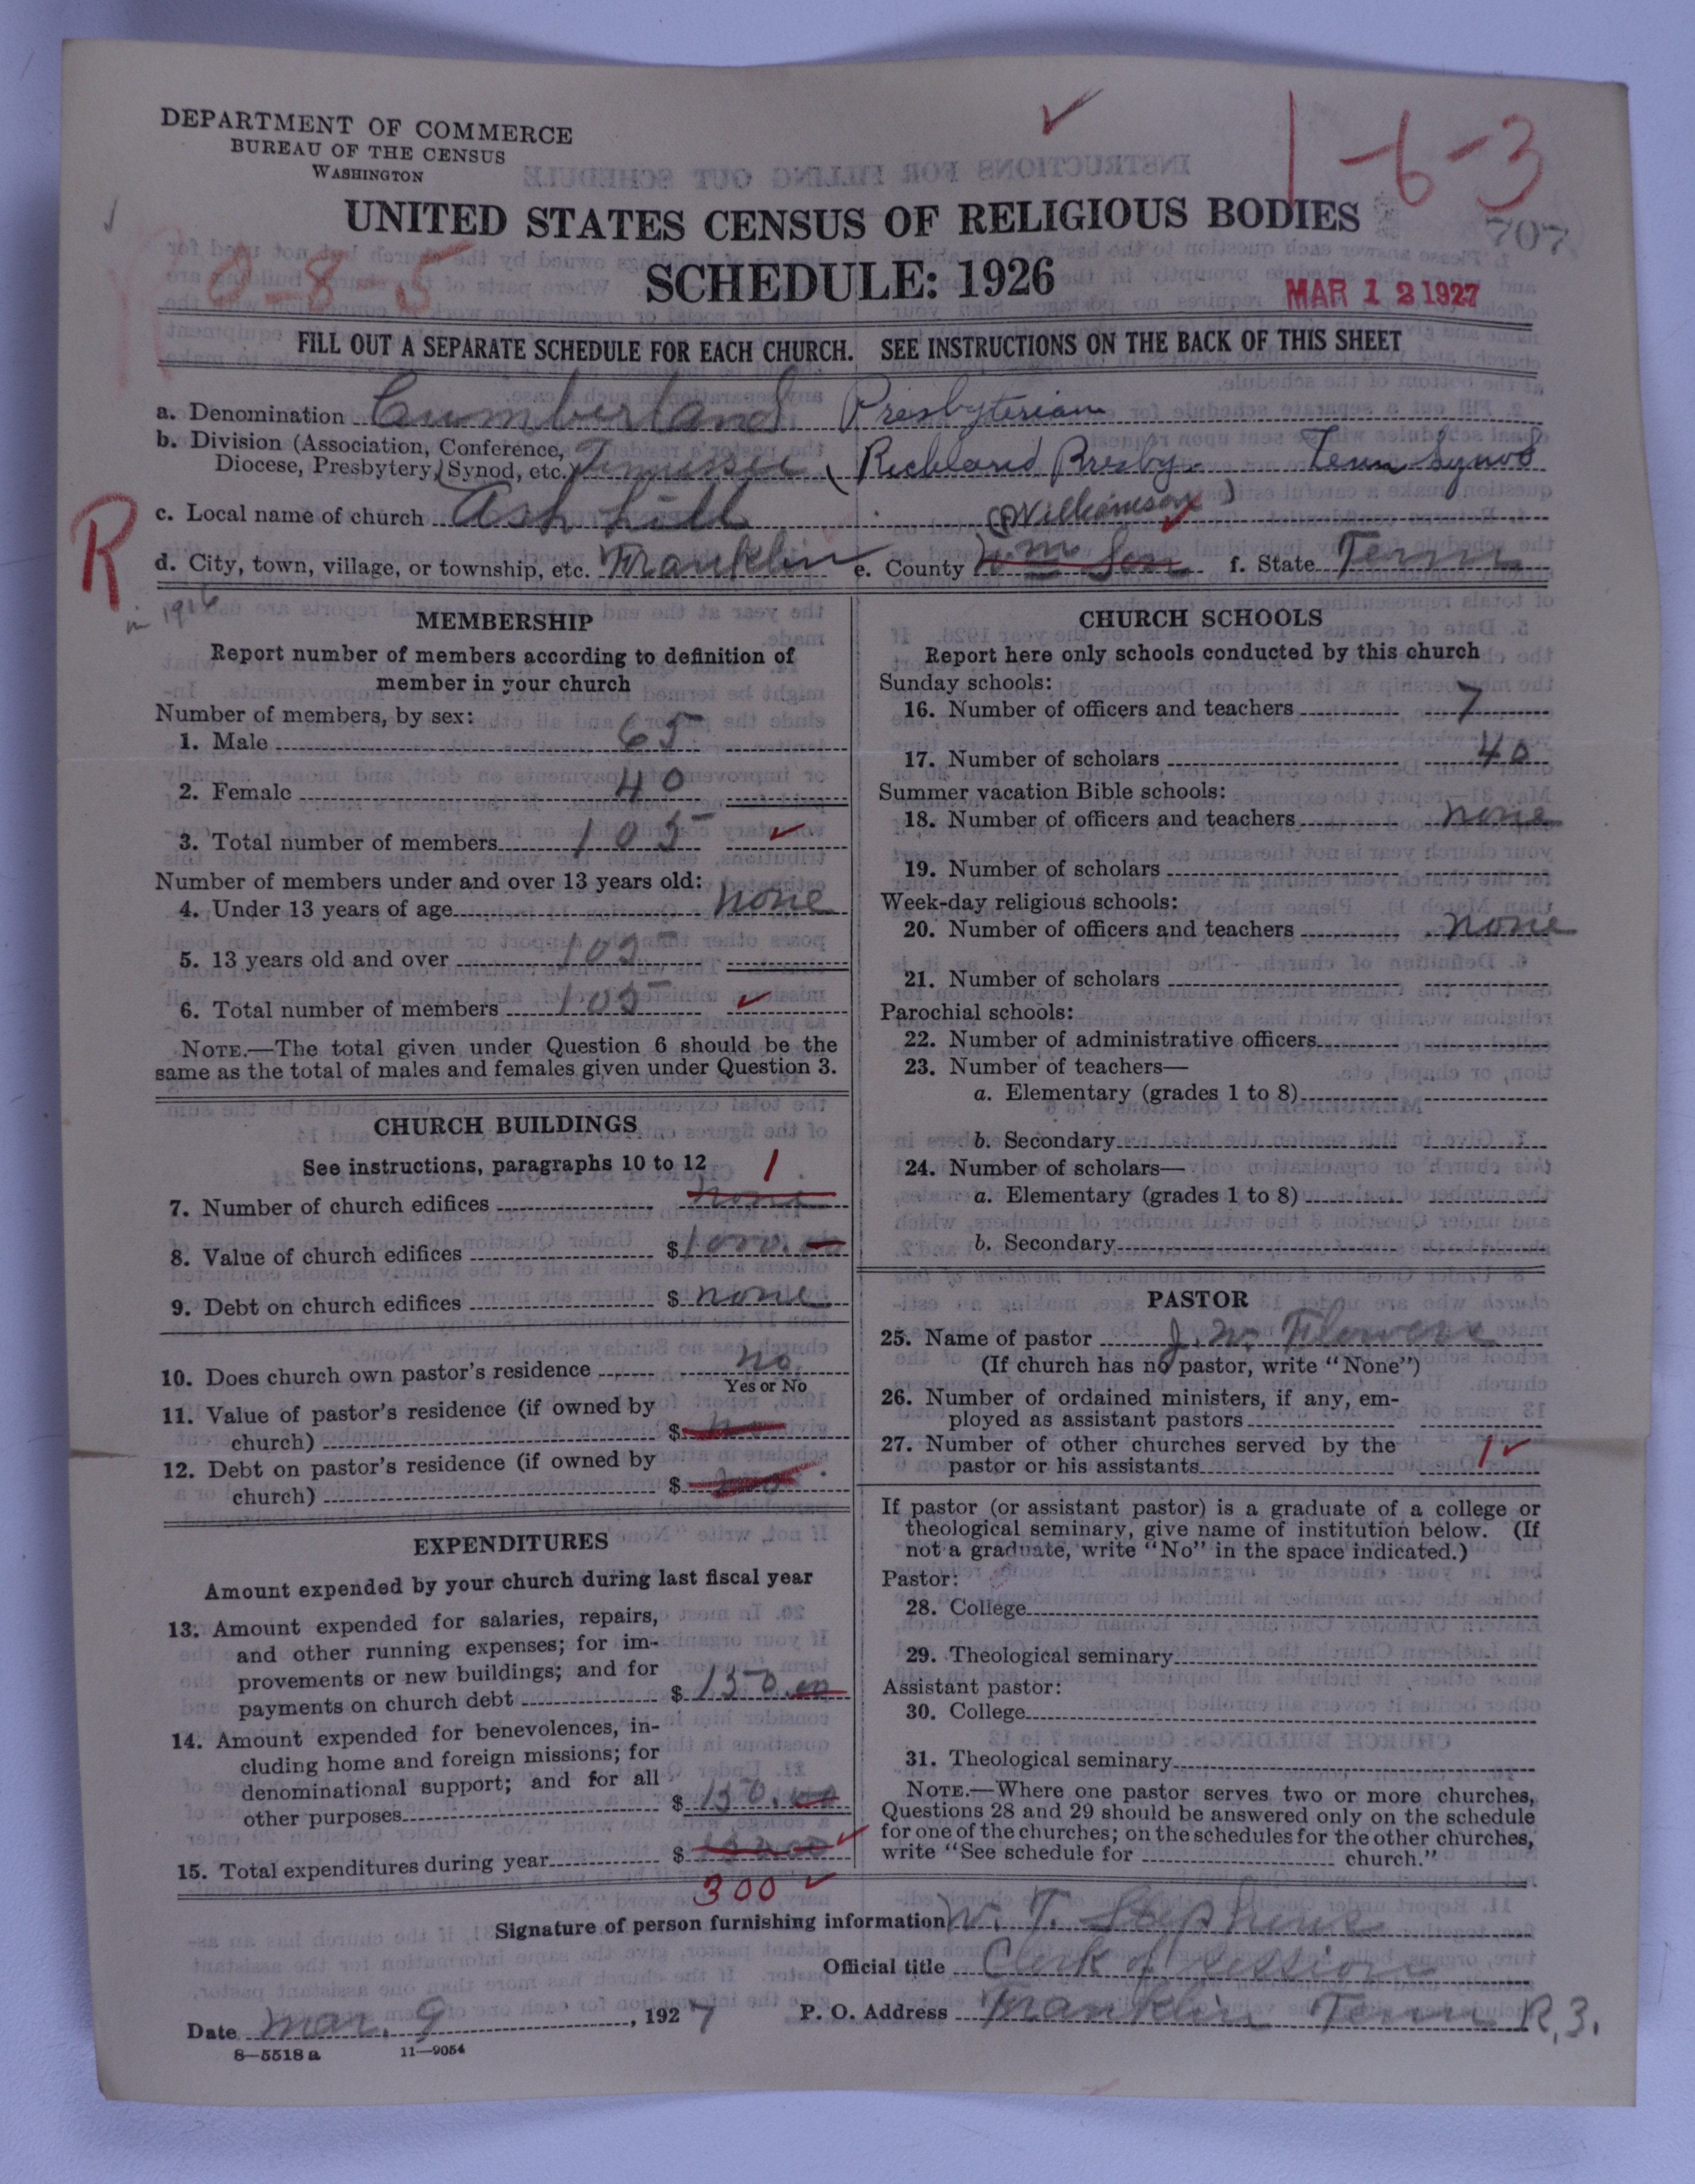 DEPARTMENT OF COMMERCE
BUREAU OF THE CENSUS
WASHINGTON
1-6-3
707
UNITED STATES CENSUS OF RELIGIOUS BODIES
SCHEDULE: 1926
MAR 12 1927
FILL OUT A SEPARATE SCHEDULE FOR EACH CHURCH. SEE INSTRUCTIONS ON THE BACK OF THIS SHEET
a. Denomination Cumberland Presbyterian
b. Division (Association, Conference,
Diocese, Presbytery, Synod, etc.) Tennessee (Richland Presby. Tenn Synod
c. Local name of church Ash Hill
(Williamson)
R
d. City, town, village, or township, etc. Franklin e. County Wm Son f. State Tenn
in 1916
MEMBERSHIP
Report number of members according to definition of
member in your church
Number of members, by sex:
1. Male 65
2. Female 40
3. Total number of members 105
Number of members under and over 13 years old:
4. Under 13 years of age none
5. 13 years old and over 105
6. Total number of members 105
NOTE.—The total given under Question 6 should be the
same as the total of males and females given under Question 3.
CHURCH BUILDINGS
See instructions, paragraphs 10 to 12
1
7. Number of church edifices none
8. Value of church edifices $1000.00
9. Debt on church edifices $ none
10. Does church own pastor's residence no
Yes or No
11. Value of pastor's residence (if owned by
church) $
12. Debt on pastor's residence (if owned by
church) $
EXPENDITURES
Amount expended by your church during last fiscal year
13. Amount expended for salaries, repairs,
and other running expenses; for im-
provements or new buildings; and for
payments on church debt $150.00
14. Amount expended for benevolences, in-
cluding home and foreign missions; for
denominational support; and for all
other purposes $150.00
15. Total expenditures during year $
300
CHURCH SCHOOLS
Report here only schools conducted by this church
Sunday schools:
16. Number of officers and teachers 7
17. Number of scholars 40
Summer vacation Bible schools:
18. Number of officers and teachers none
19. Number of scholars
Week-day religious schools:
20. Number of officers and teachers none
21. Number of scholars
Parochial schools:
22. Number of administrative officers
23. Number of teachers—
a. Elementary (grades 1 to 8)
b. Secondary
24. Number of scholars—
a. Elementary (grades 1 to 8)
b. Secondary
PASTOR
25. Name of pastor J. W. Flowers
(If church has no pastor, write "None")
26. Number of ordained ministers, if any, em-
ployed as assistant pastors
27. Number of other churches served by the
pastor or his assistants 1
If pastor (or assistant pastor) is a graduate of a college or
theological seminary, give name of institution below. (If
not a graduate, write "No" in the space indicated.)
Pastor:
28. College
29. Theological seminary
Assistant pastor:
30. College
31. Theological seminary
NOTE.—Where one pastor serves two or more churches,
Questions 28 and 29 should be answered only on the schedule
for one of the churches; on the schedules for the other churches,
write "See schedule for church."
Signature of person furnishing information W. T. Stephens
Official title Clerk of Session
Date Mar. 9, 1927 P. O. Address Franklin Tenn R.3.
8—5518 a 11—9054